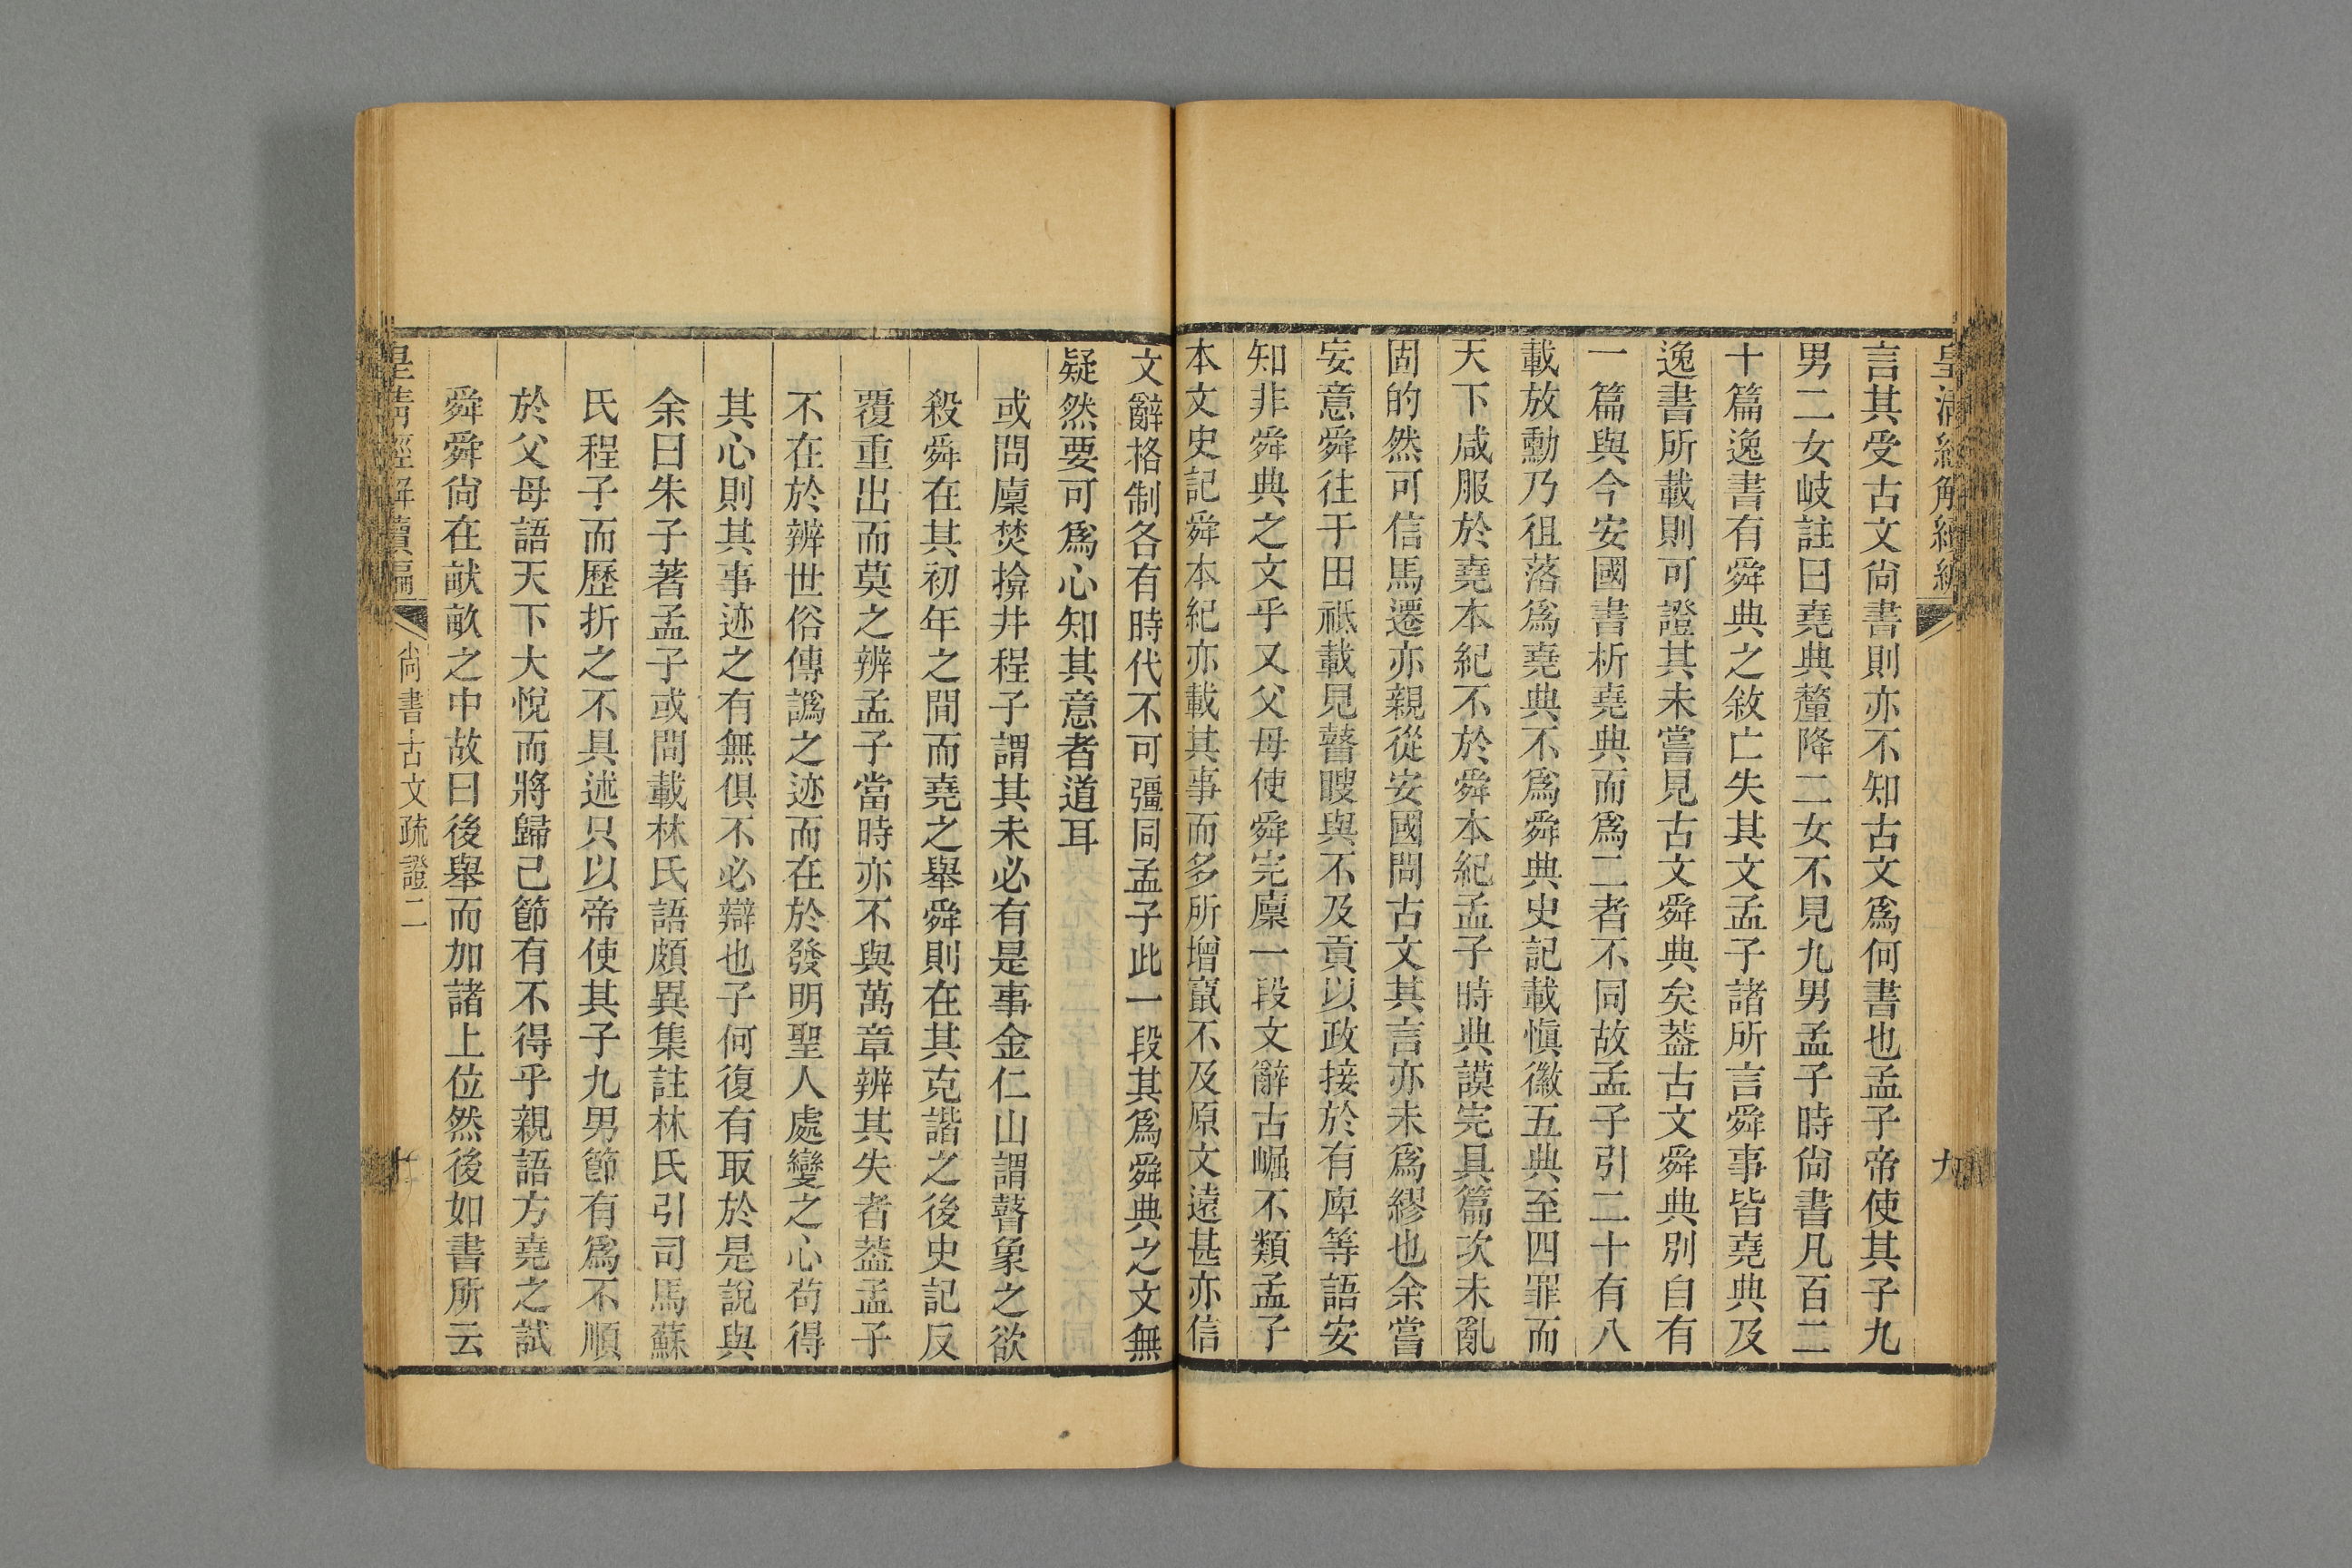 皇清經解續編
九
言其受古文尙書則亦不知古文爲何書也孟子帝使其子九
男二女岐註曰堯典釐降二女不見九男孟子時尙書凡百二
十篇逸書有舜典之敘亡失其文孟子諸所言舜事皆堯典及
逸書所載則可證其未嘗見古文舜典矣葢古文舜典別自有
一篇與今安國書析堯典而爲二者不同故孟子引二十有八
載放勳乃徂落爲堯典不爲舜典史記載愼徽五典至四罪而
天下咸服於堯本紀不於舜本紀孟子時典謨完具篇次未亂
固的然可信馬遷亦親從安國問古文其言亦未爲繆也余嘗
妄意舜往于田祗載見瞽瞍與不及貢以政接於有庳等語安
知非舜典之文乎又父母使舜完廩一段文辭古崛不類孟子
本文史記舜本紀亦載其事而多所增竄不及原文遠甚亦信
文辭格制各有時代不可彊同孟子此一段其爲舜典之文無
疑然要可爲心知其意者道耳
或問廩焚揜井程子謂其未必有是事金仁山謂瞽象之欲
殺舜在其初年之間而堯之舉舜則在其克諧之後史記反
覆重出而莫之辨孟子當時亦不與萬章辨其失者葢孟子
不在於辨世俗傳譌之迹而在於發明聖人處變之心苟得
其心則其事迹之有無俱不必辯也子何復有取於是說與
余曰朱子著孟子或問載林氏語頗異集註林氏引司馬蘇
氏程子而歷折之不具述只以帝使其子九男節有爲不順
於父母語天下大悅而將歸己節有不得乎親語方堯之試
舜舜尙在畎畝之中故曰後舉而加諸上位然後如書所云
皇清經解續編
尙書古文疏證二
十